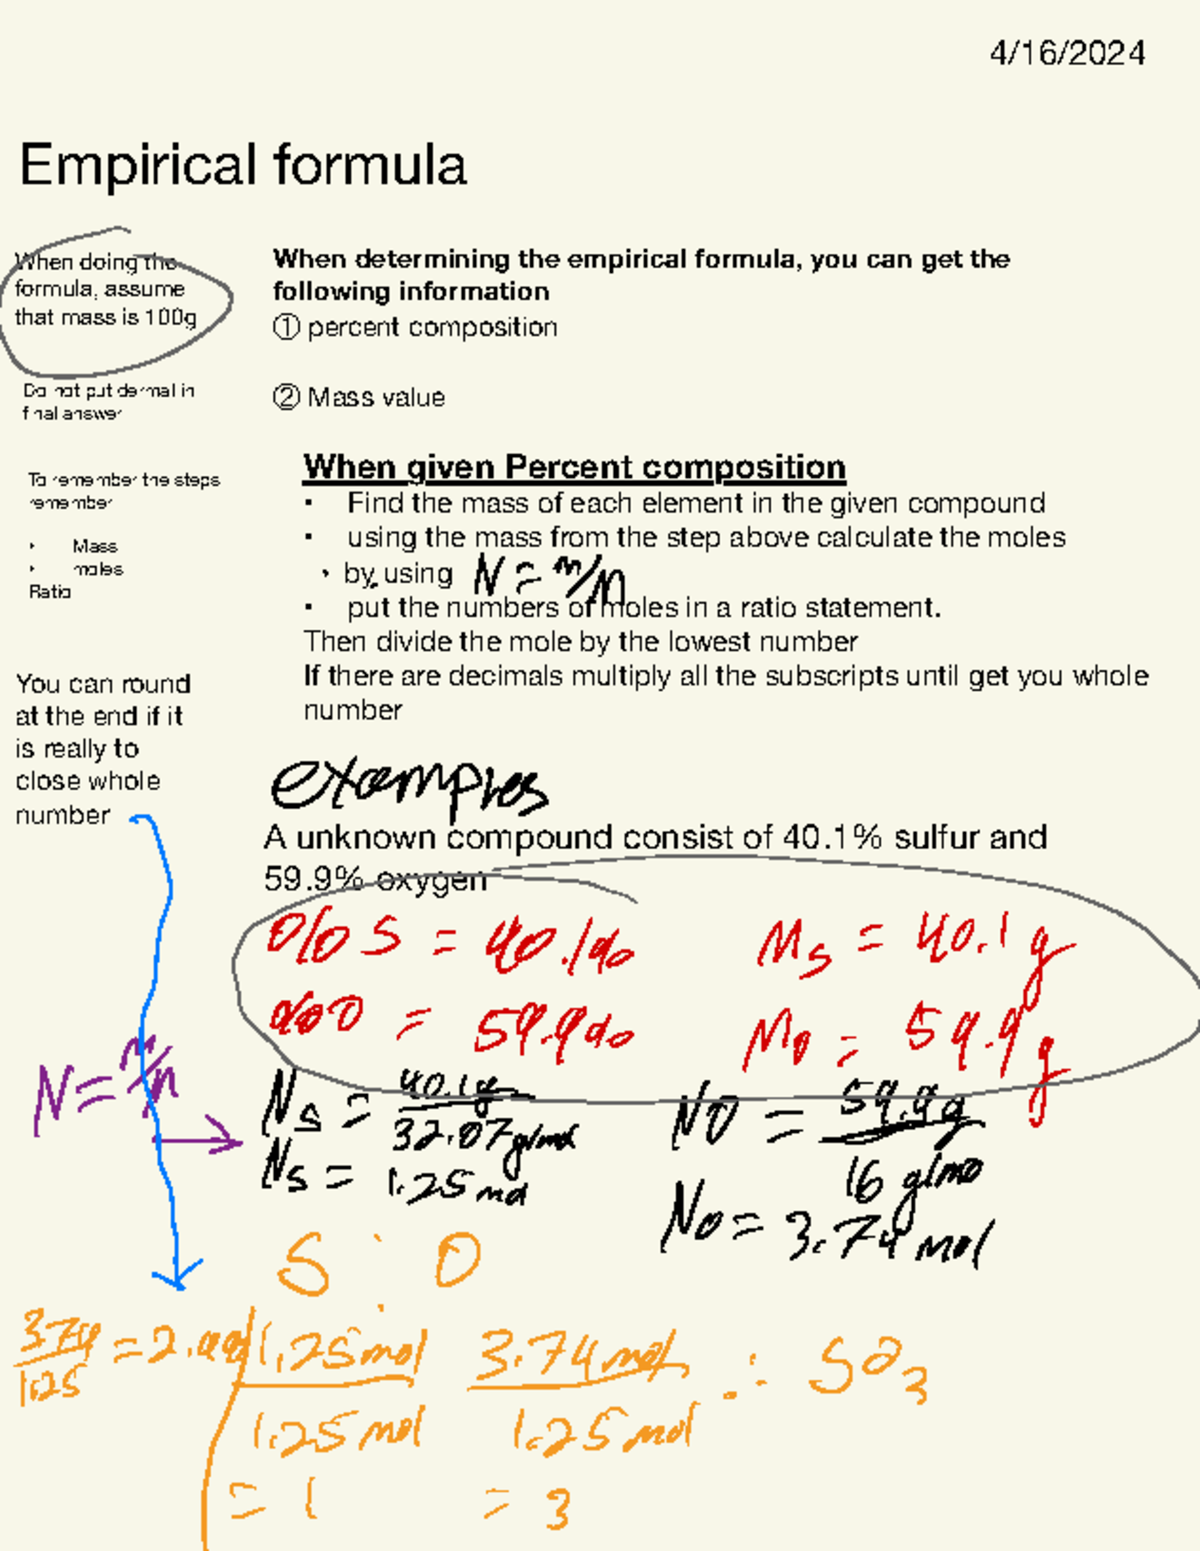 4/16/2024
Empirical formula
When doing the
formula, assume
that mass is 100g
Do not put decmal in
final answer
To remember the steps
remember
• Mass
• moles
Ratio
You can round
at the end if it
is really to
close whole
number
When determining the empirical formula, you can get the
following information
① percent composition
② Mass value
When given Percent composition
• Find the mass of each element in the given compound
• using the mass from the step above calculate the moles
• by using N = m/M
• put the numbers of moles in a ratio statement.
Then divide the mole by the lowest number
If there are decimals multiply all the subscripts until get you whole
number
examples
A unknown compound consist of 40.1% sulfur and
59.9% oxygen
% S = 40.1% Ms = 40.1 g
% O = 59.9% Mo = 59.9 g
N = m/M
Ns = 40.1g / 32.07 g/mol No = 59.9g / 16 g/mo
Ns = 1.25 mol No = 3.74 mol
S : O
3.74 / 1.25 = 2.99 1.25 mol / 1.25 mol : 3.74 mol / 1.25 mol ∴ SO3
= 1 = 3